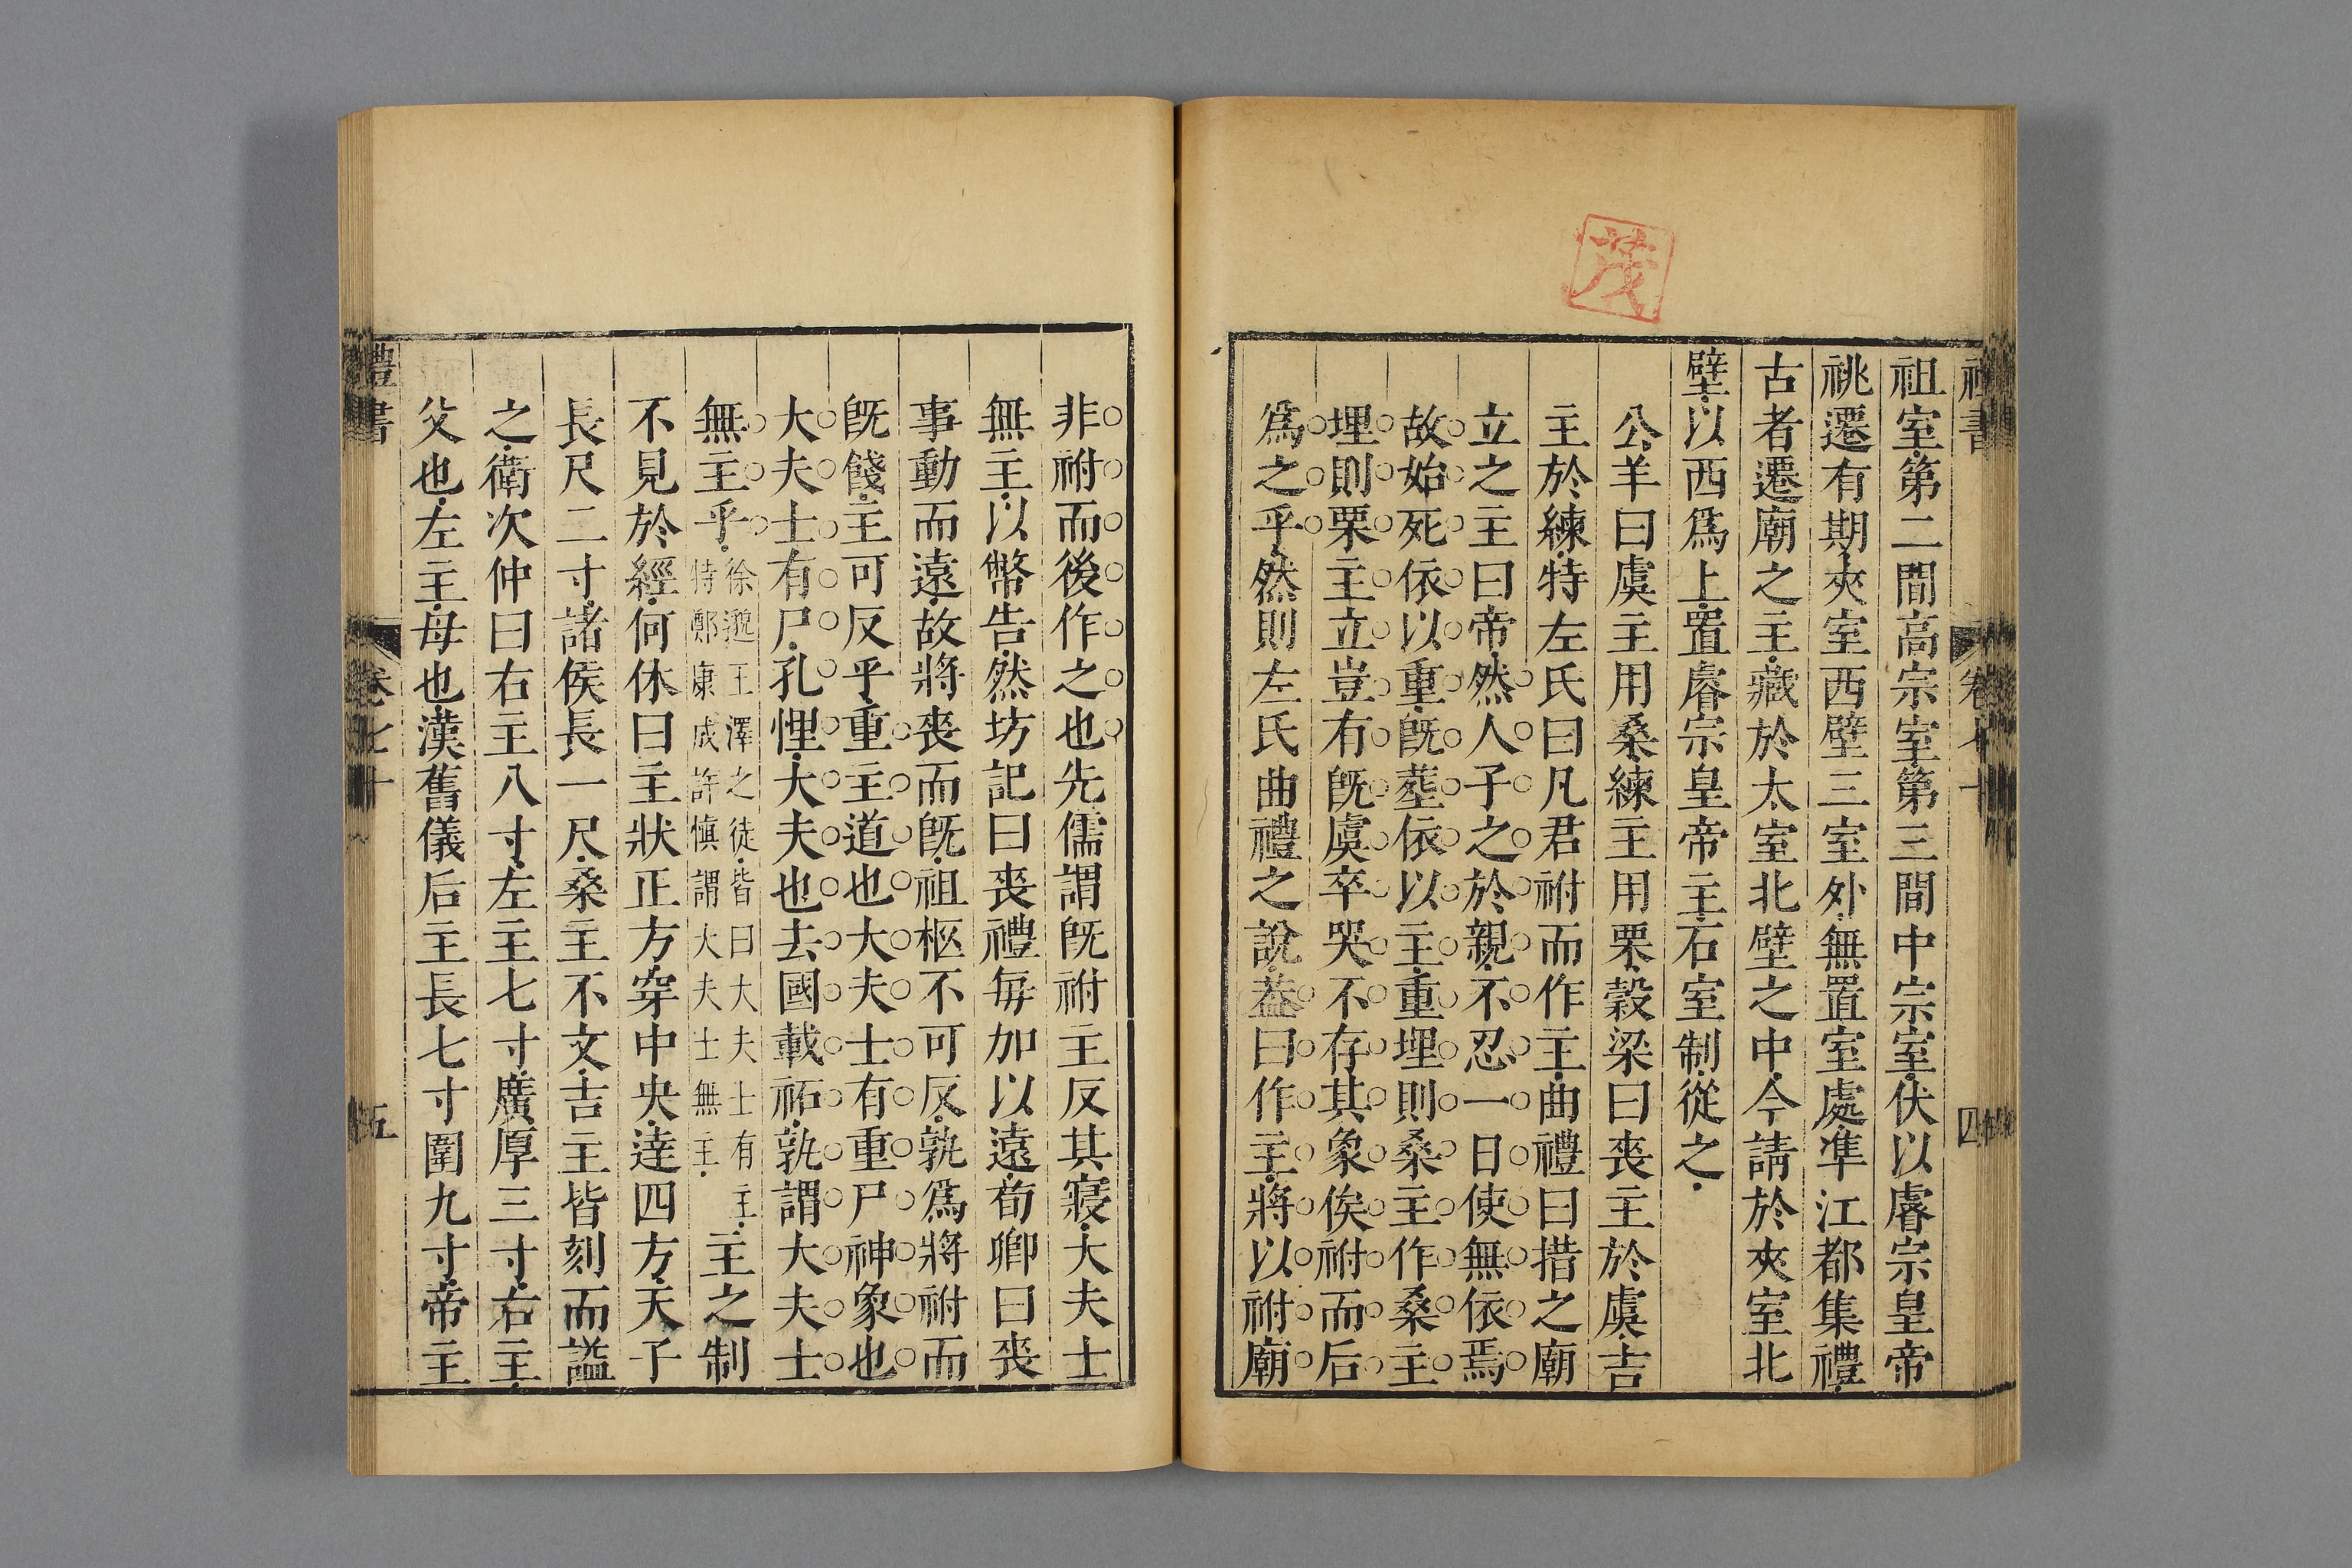 茂
禮書 卷七十 四
祖室第二間高宗室第三間中宗室伏以睿宗皇帝
祧遷有期夾室西壁三室外無置室處準江都集禮
古者遷廟之主藏於太室北壁之中今請於夾室北
壁以西爲上置睿宗皇帝主石室制從之
公羊曰虞主用桑練主用栗穀梁曰喪主於虞吉
主於練特左氏曰凡君祔而作主曲禮曰措之廟
立之主曰帝然人子之於親不忍一日使無依焉
故始死依以重既葬依以主重埋則桑主作桑主
埋則栗主立豈有既虞卒哭不存其象俟祔而后
爲之乎然則左氏曲禮之說葢曰作主將以祔廟
非祔而後作之也先儒謂既祔主反其寢大夫士
無主以幣告然坊記曰喪禮每加以遠荀卿曰喪
事動而遠故將喪而既祖柩不可反孰爲將祔而
既餞主可反乎重主道也大夫士有重尸神象也
大夫士有尸孔悝大夫也去國載祏孰謂大夫士
無主乎徐邈王澤之徒皆曰大夫士有主特鄭康成許慎謂大夫士無主主之制
不見於經何休曰主狀正方穿中央達四方天子
長尺二寸諸侯長一尺桑主不文吉主皆刻而謚
之衛次仲曰右主八寸左主七寸廣厚三寸右主
父也左主母也漢舊儀后主長七寸圍九寸帝主
禮書 卷七十 五